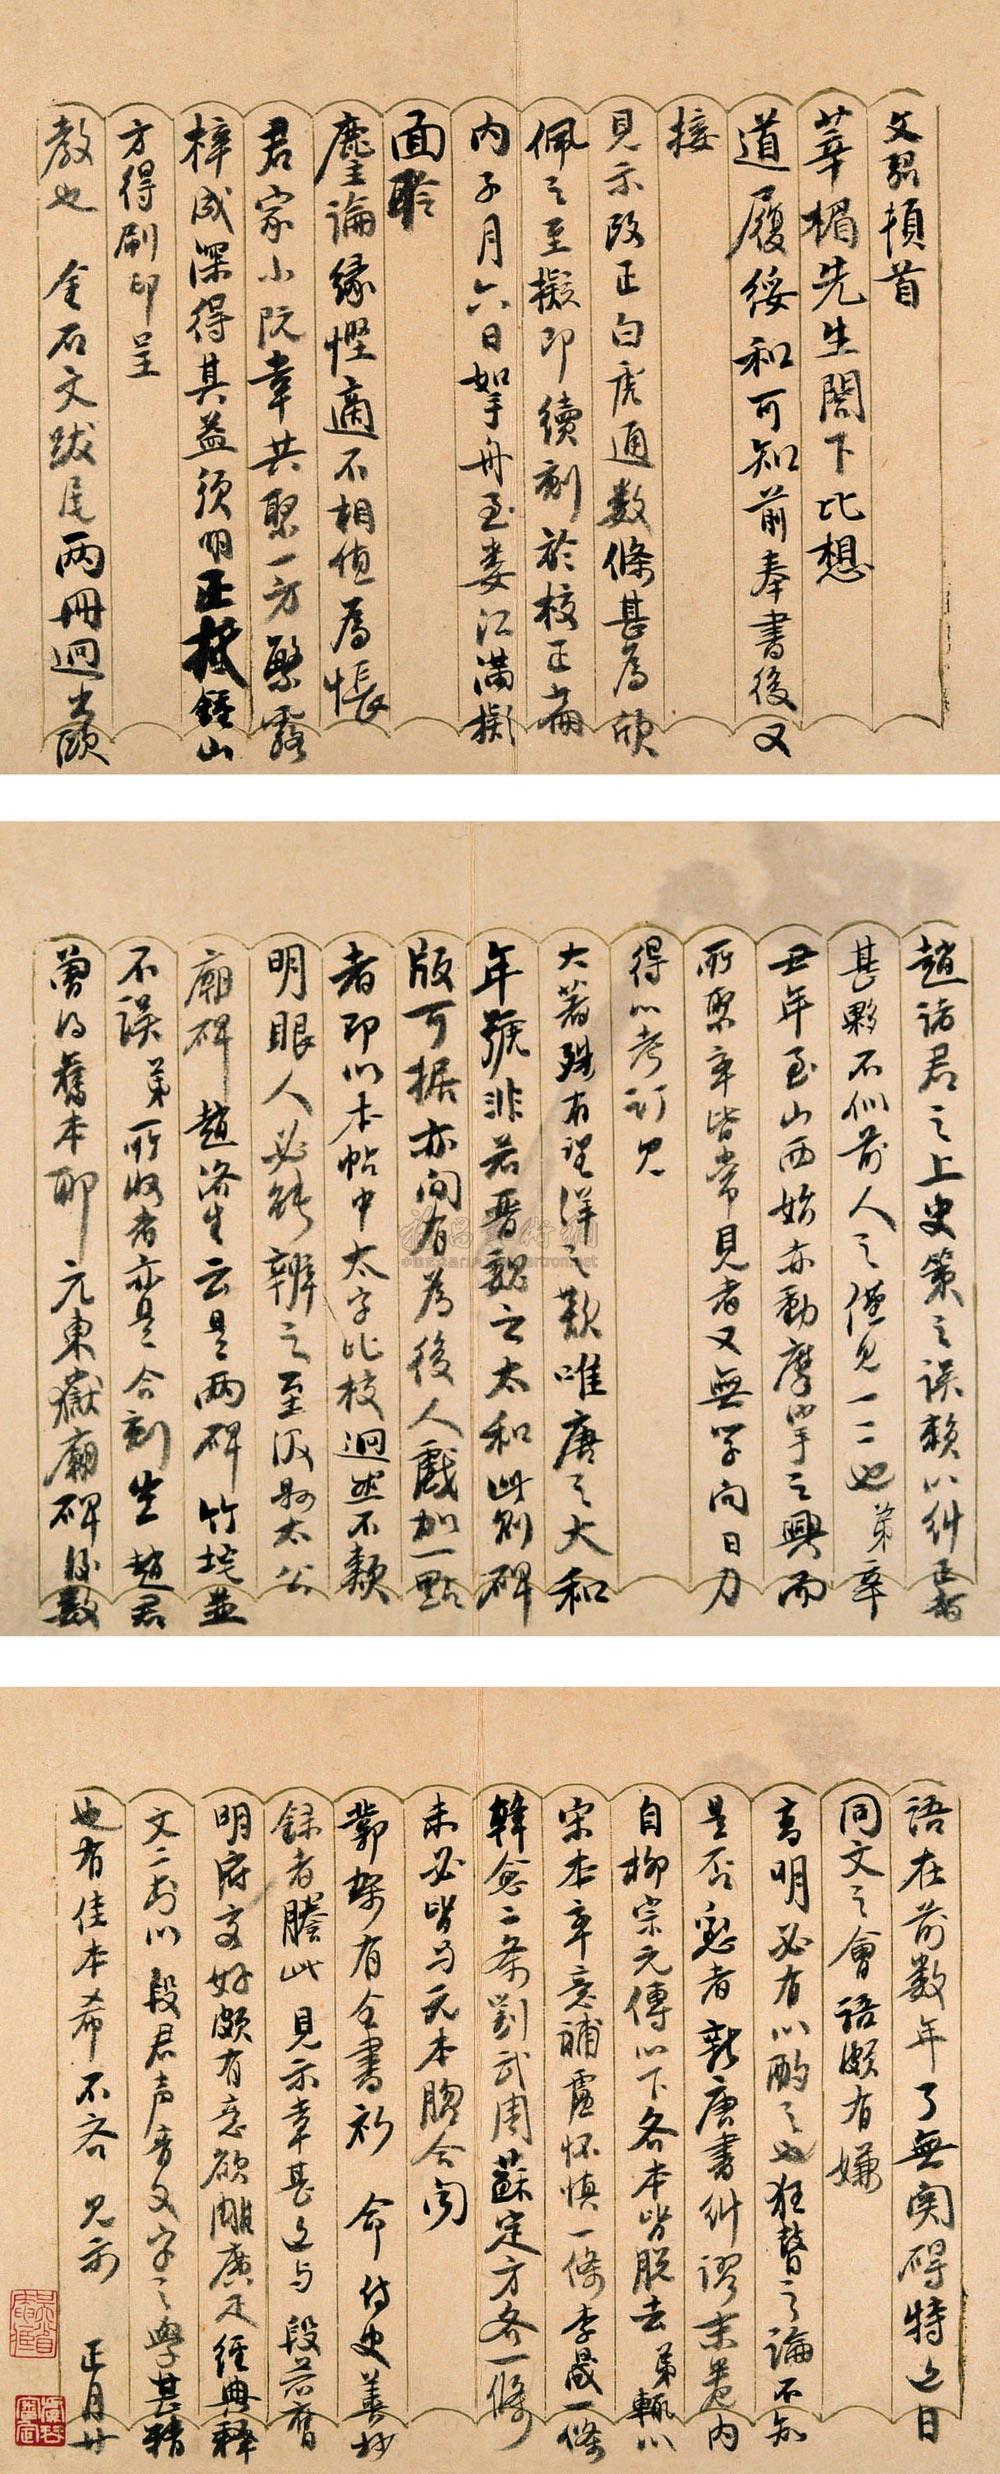 文弨頓首
莘楣先生閣下比想
道履綏和可知前奉書後又
接
見示改正白虎通數條甚為欣
佩之至擬即續刻於校正篇
內子月六日挐舟至婁江滿擬
面聆
麈論緣慳適不相值為悵
君家小阮幸共聚一方繁露
梓成深得其益須明正抵鍾山
方得刷印呈
教也 金石文跋尾兩冊迴出歐
趙諸君之上史策之誤賴以糾正者
甚夥不似前人之僅見一二也弟辛
丑年至山西始亦動摩挲之興而
所聚率皆常見者又無學問日力
得以考訂見
大著殊有望洋之歎唯唐之大和
年號非若晉魏之太和此則碑
版可据亦間有為後人戲加一點
者即以本帖中太字比校迴然不類
明眼人必能辨之至汲縣太公
廟碑趙洛生云是兩碑竹垞並
不誤弟所收者亦是合刻豈趙君
曾得舊本耶元東嶽廟碑後數
語在前數年了無関碍特近日
同文之會語頗有嫌
高明必有以酌之也狂瞽之論不知
是否新唐書糾謬末卷內
自柳宗元傳以下各本皆脫去弟輒以
宋本率意補盧懷慎一條李晟一條
韓愈二條劉武周蘇定方各一條
未必皆与元本脗合聞
鄴架有全書祈 命侍史善抄
錄者謄此見示幸甚近与段若膺
明府交好頗有意欲雕廣疋經典釋
文二書以段君声音文字之學甚精
也有佳本希不吝見示 正月廿